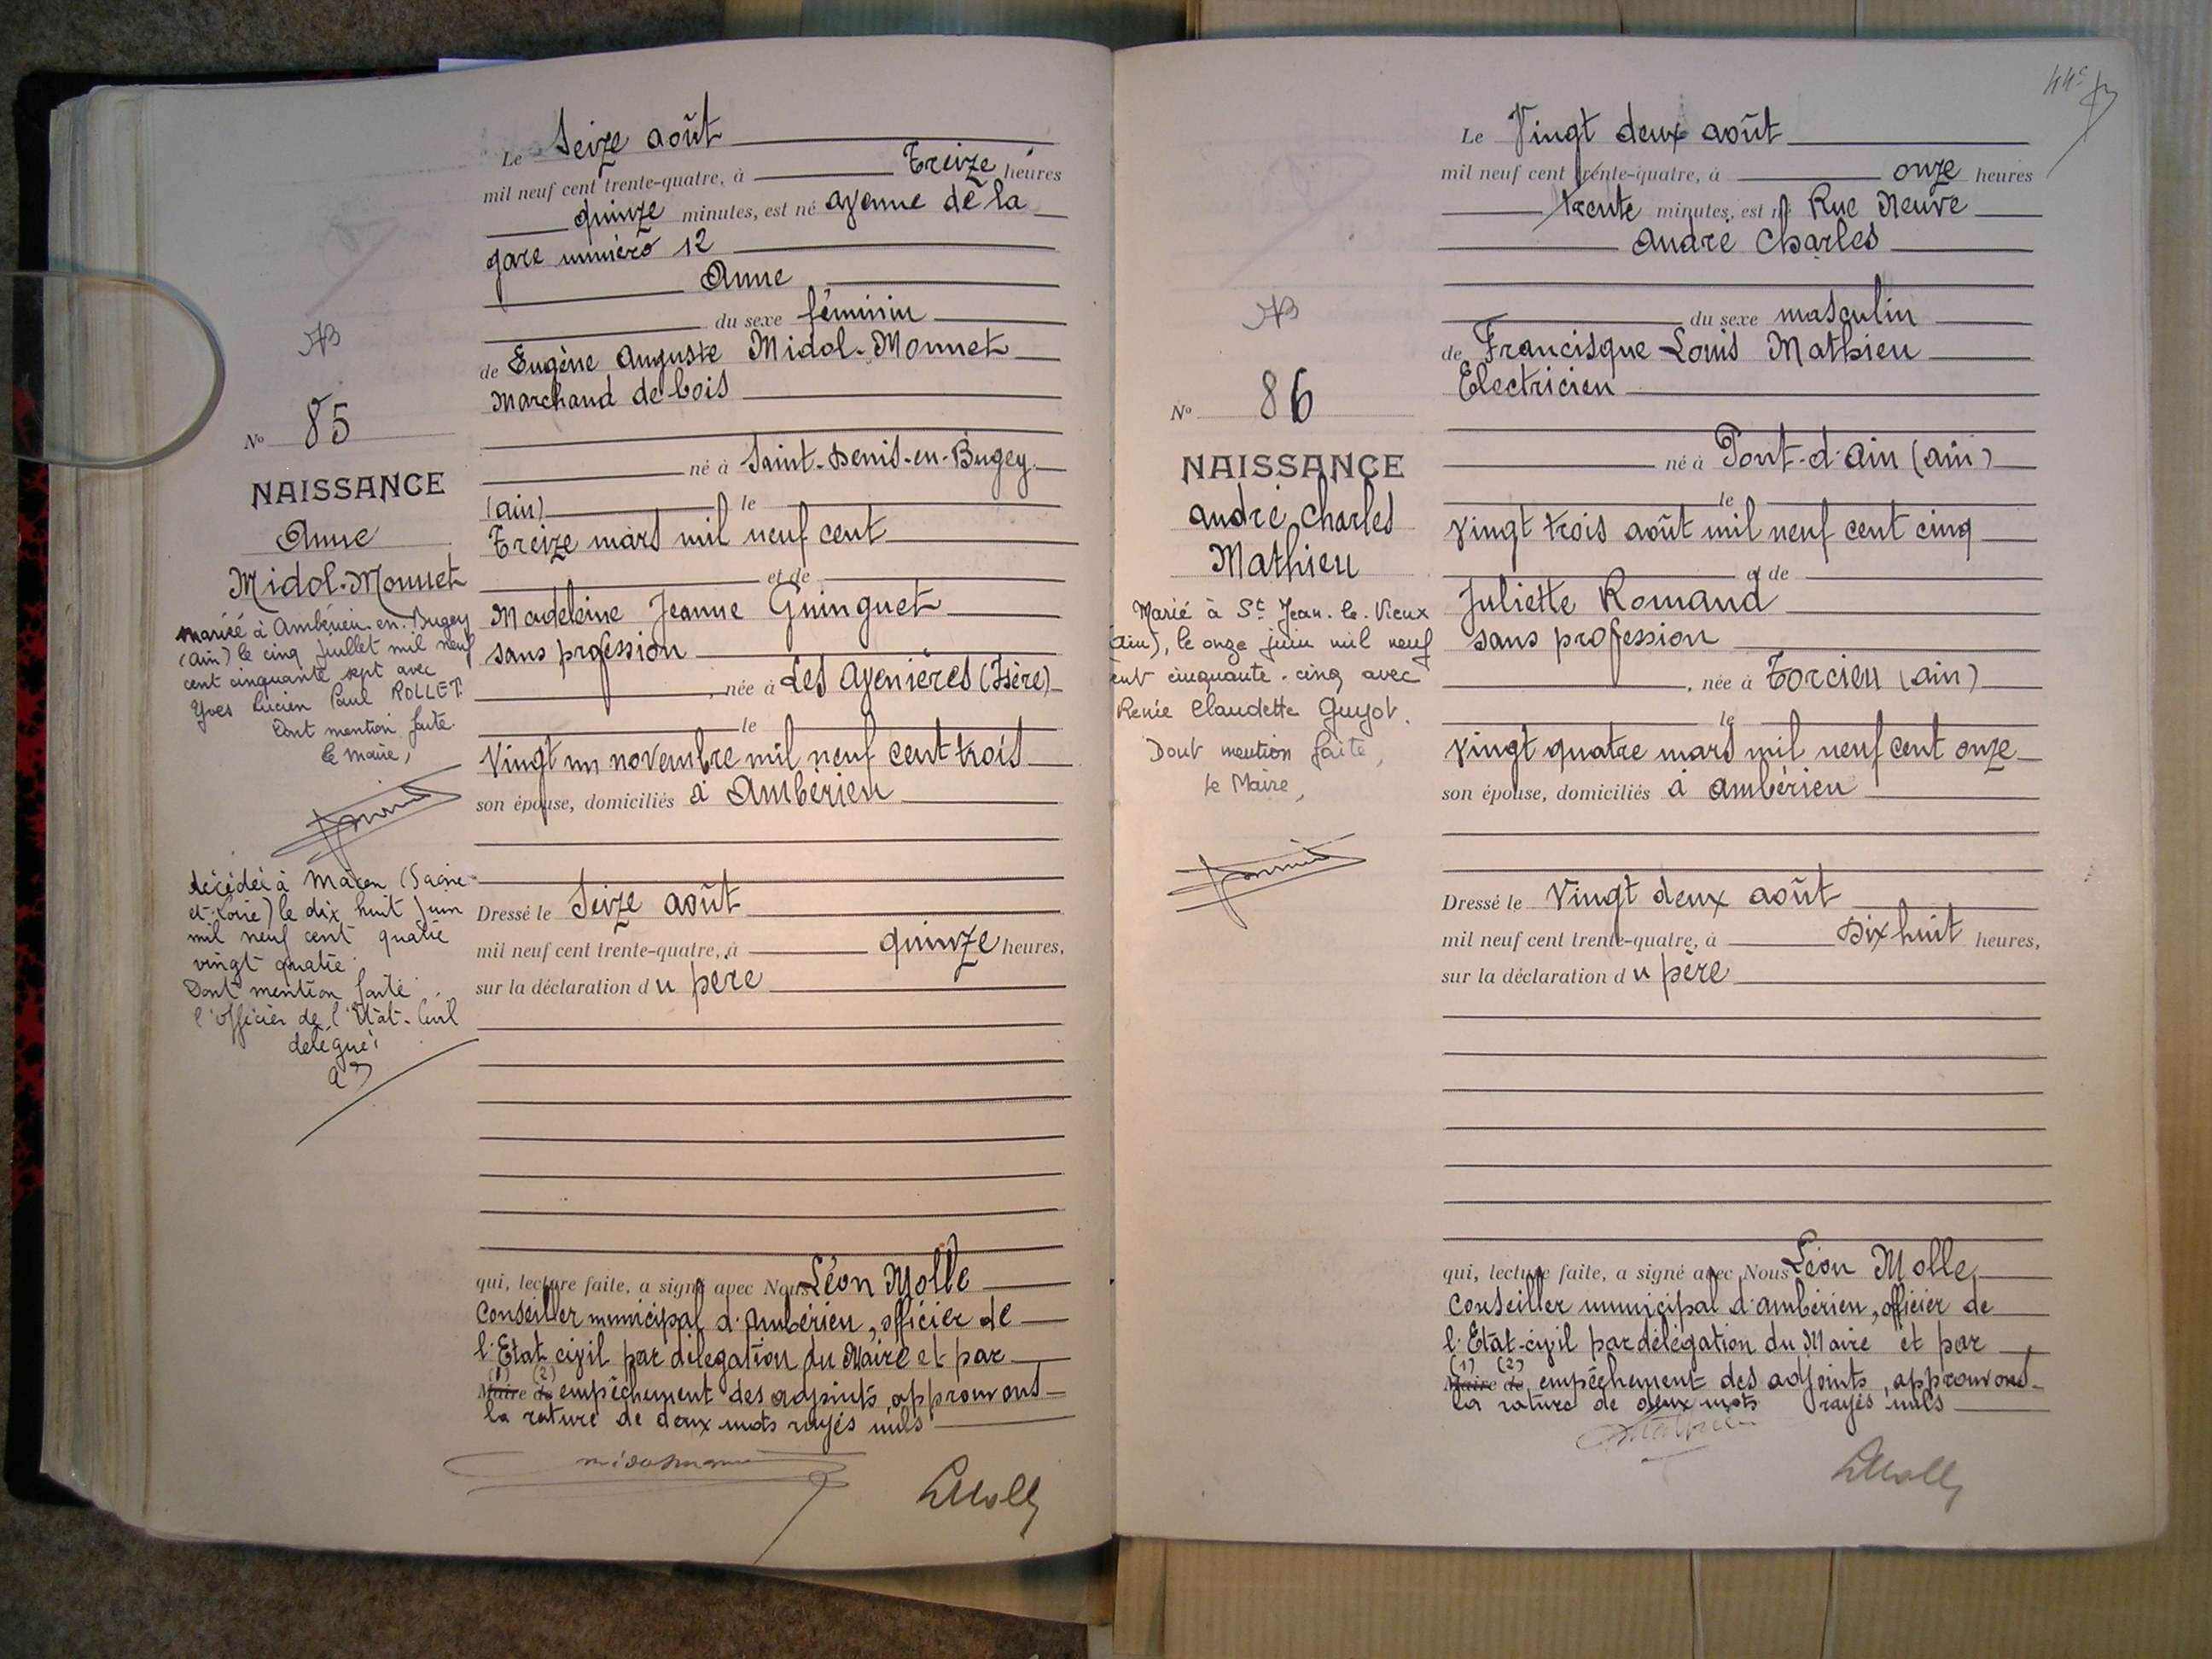 Le Seize août
mil neuf cent trente-quatre, à Treize heures
quinze minutes, est né avenue de la
gare numéro 12
Anne
du sexe féminin
de Eugène Auguste Midol-Monnet
Marchand de bois
né à Saint-Denis-en-Bugey
(Ain) le
Treize mars mil neuf cent
et de
Madeleine Jeanne Guinguet
sans profession
, née à Les Avenières (Isère)
le
Vingt un novembre mil neuf cent trois
son épouse, domiciliés à Ambérieu
Dressé le Seize août
mil neuf cent trente-quatre, à quinze heures,
sur la déclaration du père
qui, lecture faite, a signé avec Nous Léon Molle
Conseiller municipal d'Ambérieu, officier de
l'Etat civil par délégation du Maire et par
(1) (2)
Maire de empêchement des adjoints, approuvons
la rature de deux mots rayés nuls
LMolle
No 85
NAISSANCE
Anne
Midol-Monnet
Mariée à Ambérieu-en-Bugey
(Ain) le cinq juillet mil neuf
cent cinquante sept avec
Yves Lucien Paul ROLLET.
Dont mention faite.
Le Maire,
Décédée à Mâcon (Saône-
et-Loire) le dix huit juin
mil neuf cent quatre
vingt quatre.
Dont mention faite.
l'officier de l'Etat-Civil
délégué
44e
Le Vingt deux août
mil neuf cent trente-quatre, à onze heures
trente minutes, est né Rue Neuve
André Charles
du sexe masculin
de Francisque Louis Mathieu
Electricien
né à Pont-d'Ain (Ain)
le
vingt trois août mil neuf cent cinq
et de
Juliette Romand
sans profession
, née à Torcieu (Ain)
le
vingt quatre mars mil neuf cent onze
son épouse, domiciliés à Ambérieu
Dressé le Vingt deux août
mil neuf cent trente-quatre, à Dix huit heures,
sur la déclaration du père
qui, lecture faite, a signé avec Nous Léon Molle,
Conseiller municipal d'Ambérieu, officier de
l'Etat-civil par délégation du Maire et par
(1) (2)
Maire de empêchement des adjoints, approuvons
la rature de deux mots rayés nuls
Mathieu
LMolle
No 86
NAISSANCE
André Charles
Mathieu
Marié à St Jean-le-Vieux
(Ain), le onze juin mil neuf
cent cinquante-cinq avec
Renée Claudette Guyot.
Dont mention faite,
Le Maire,